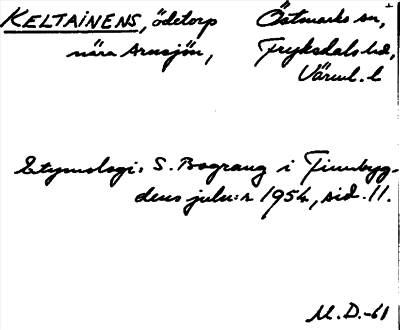 KELTAINENS, ödetorp
nära Arnsjön,
Östmarks sn,
Fryksdals hd,
Värml. l
Etymologi: S. Bograng i Finnbyg-
dens julnr 1954, sid. 11.
M.D.-61